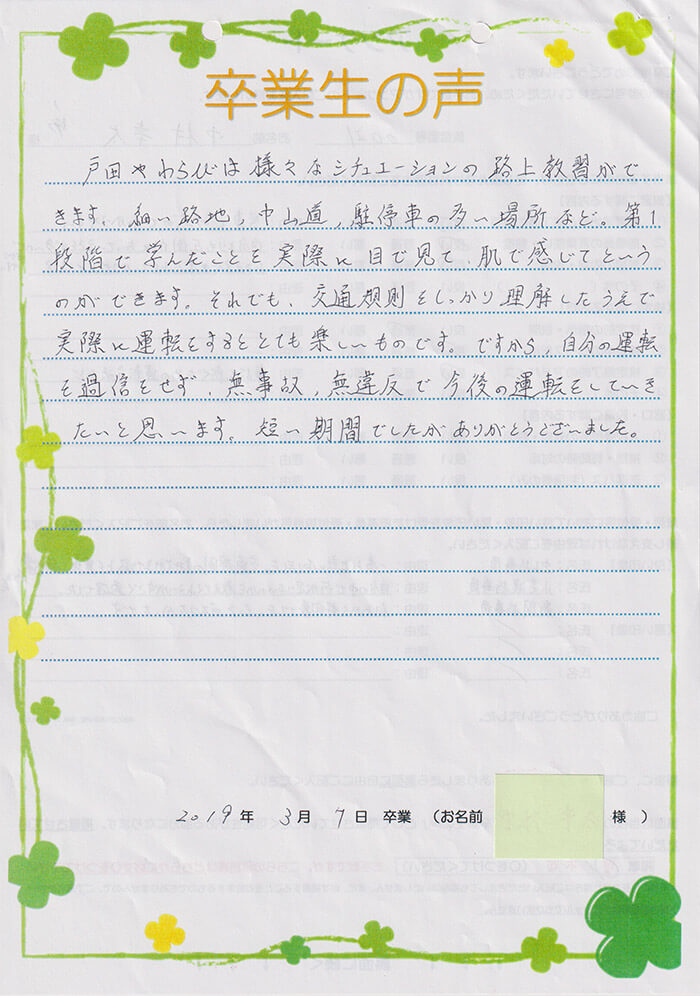 卒業生の声
戸田やわらびは様々なシチュエーションの路上教習がで
きます。細い路地，中山道，駐停車の多い場所など。第1
段階で学んだことを実際に目で見て、肌で感じてという
のができます。それでも、交通規則をしっかり理解したうえで
実際に運転をするととても楽しいものです。ですから，自分の運転
を過信をせず、無事故，無違反で今後の運転をしていき
たいと思います。短い期間でしたがありがとうございました。
2019年 3月 7日 卒業 （お名前 様）